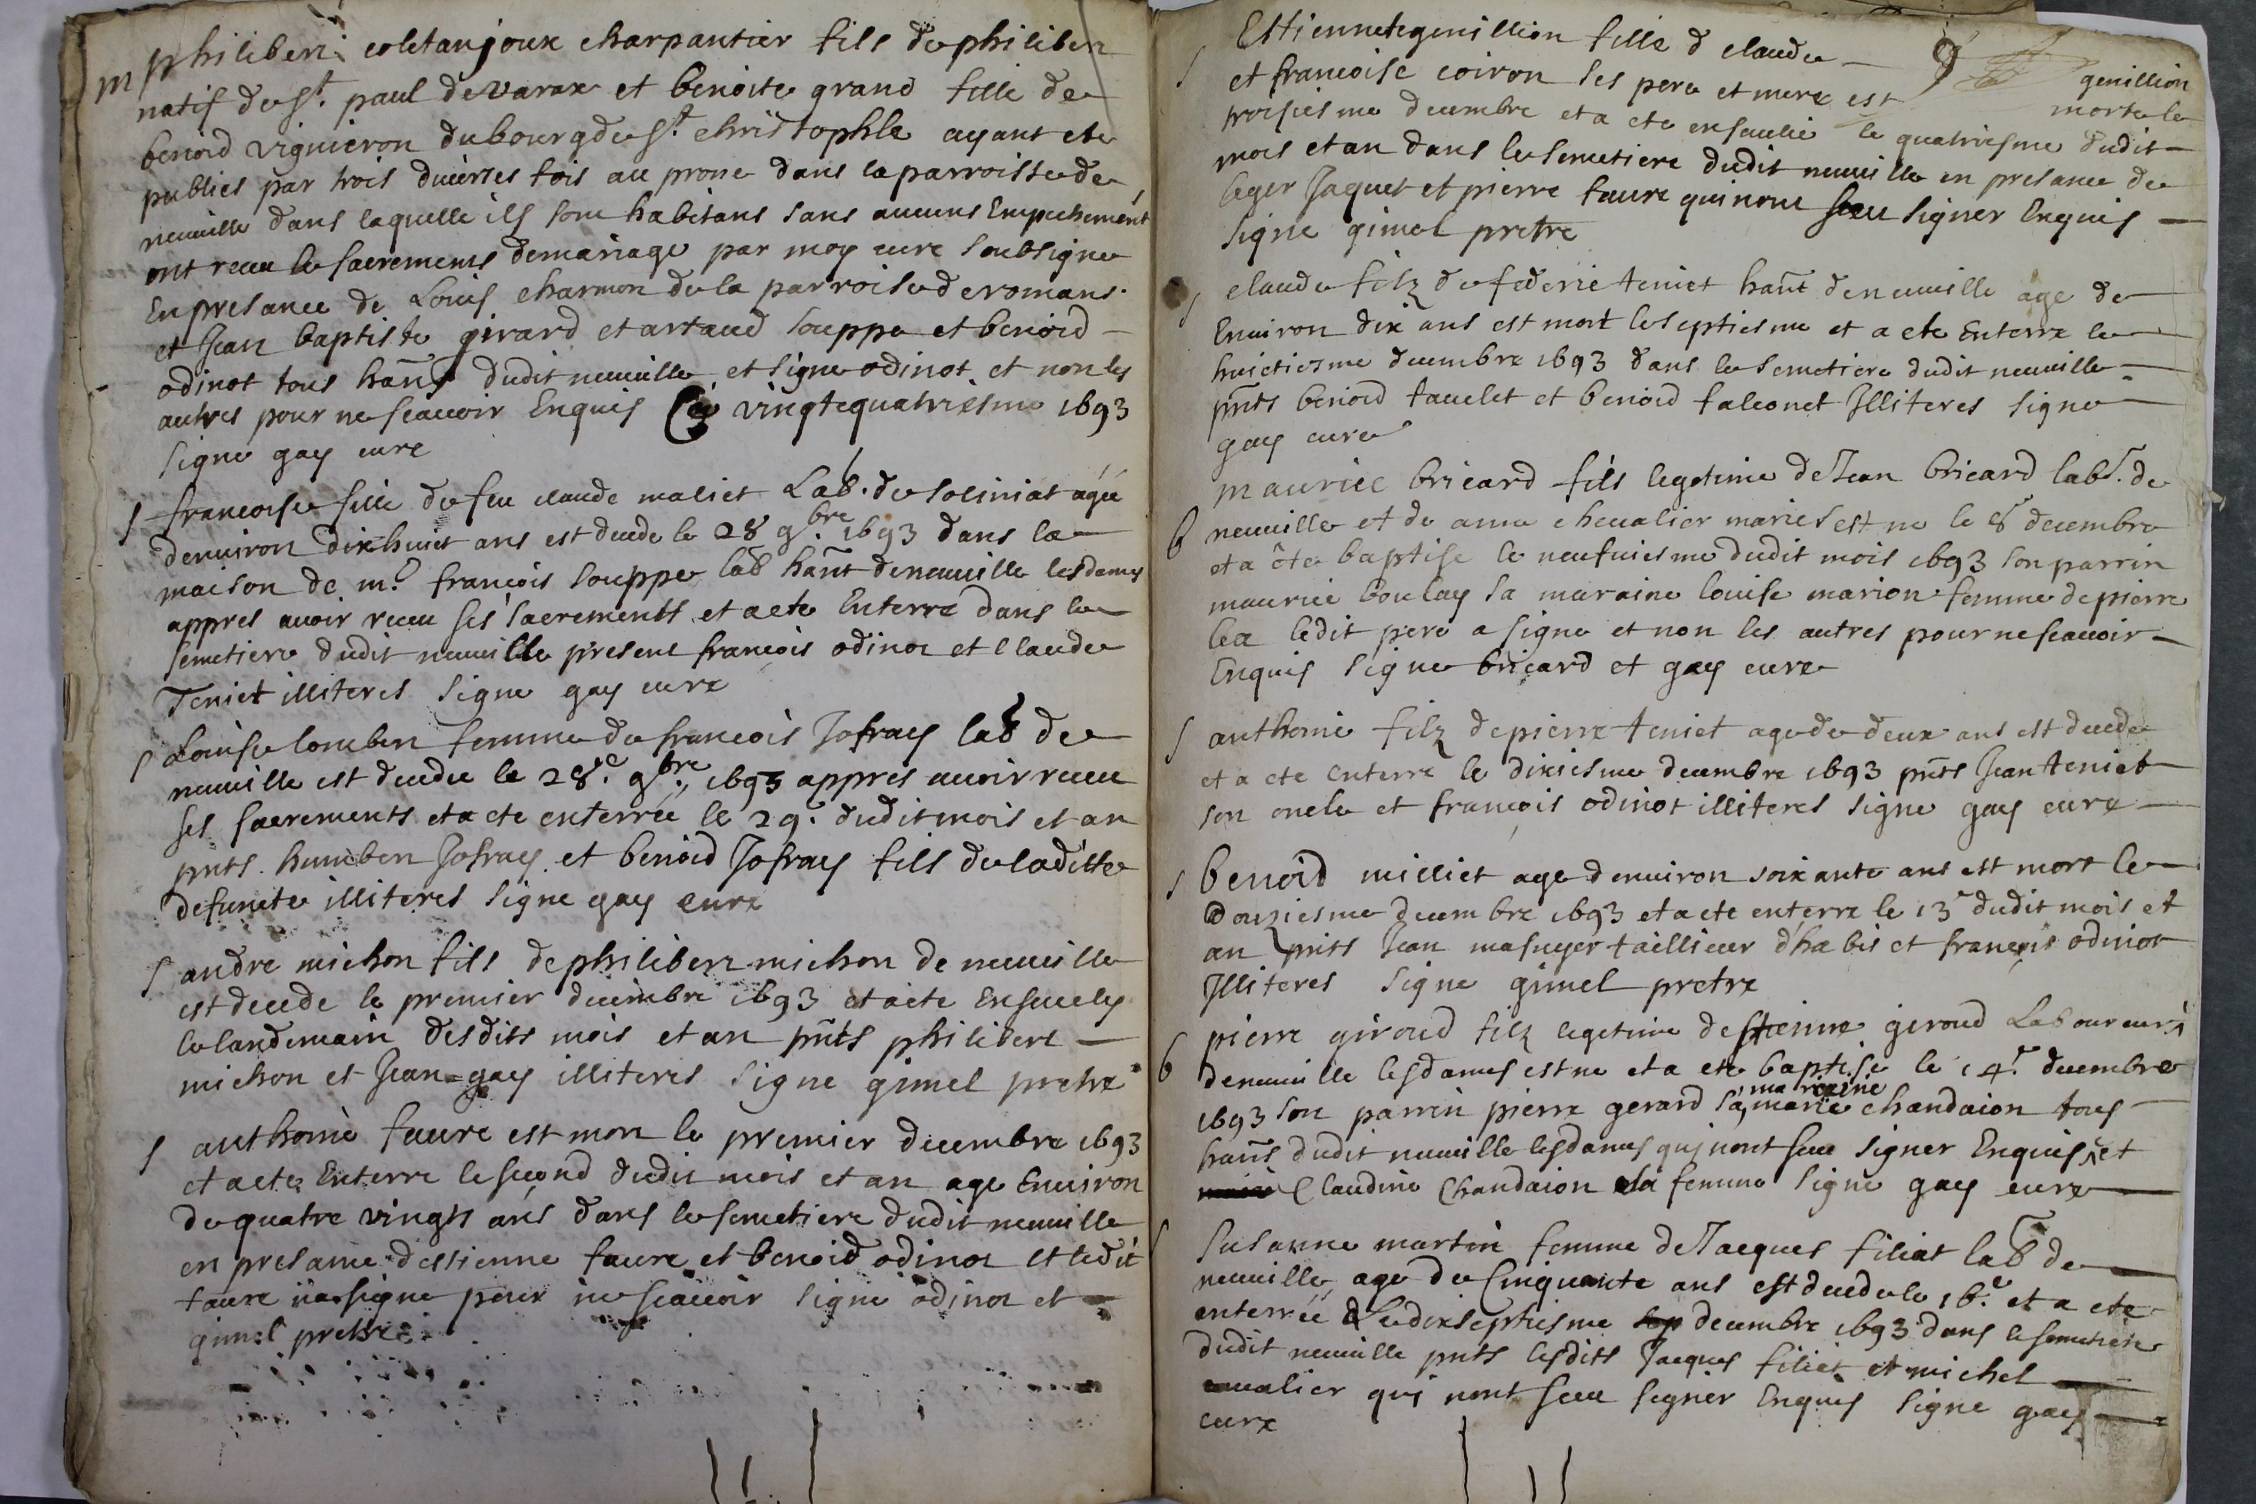 m philibert coletanjoux charpantier fils de philibert
natif de st. paul de varax et benoite grand fille de
benoid vignieron du bourg de st christophle ayant ete
publies par trois diuerses fois au prone dans la parroisse de
neuuille dans laquelle ils sont habitans sans aucuns Empechement
ont receu le sacrements de mariage par moy cure soubsigne
En presance de Louis charmon de la parroise de romans
et Jean baptiste girard et artaud souppe et benoid
odinot tous hañs dudit neuuille et signe odinot et non les
autres pour ne scauoir Enquis Ce vingtequatriesme 1693
signe gay cure
s francoise fille de feu claude maliet Lab. de soliniat agée
denuiron dixhuict ans est decede le 28 9.bre 1693 dans la
maison de m.e francois souppe lab hañt de neuuille lesdames
appres auoir receu ses sacrements et a ete Enterre dans le
semetiere dudit neuuille present francois odinot et claude
Teniet illiteres signe gay cure
s Louise lombert femme de francois Jofray lab de
neuuille est decedee le 28.e 9.bre 1693 appres auoir receu
ses sacrements et a ete enterrée le 29. dudit mois et an
pnts humbert Jofray et benoid Jofray fils de laditte
defuncte illiteres signe gay cure
s andre michon fils de philibert michon de neuuille
est decede le premier decembre 1693 et a ete Enseuely
le landemain desdits mois et an pnts philibert
michon et Jean gay illiteres signe gimel pretre
s anthoine faure est mort le premier decembre 1693
et a ete Enterre le second dudit mois et an age Enuiron
de quatre vingts ans dans le semetiere dudit neuuille
en presance destienne faure et benoid odinot et ledit
faure na signe pour ne scauoir signe odinot et
gimel pretre
s Estiennete genillion fille d claude 9 genillion
et francoise coiron ses pere et mere est morte le
troisiesme decembre et a ete enseuelie le quatriesme dudit
mois et an dans le semetiere dudit neuuille en presance de
leger Jaquet et pierre faure qui nont sceu signer Enquis
signe gimel pretre
s claude filz de federic teniet hañt de neuuille age de
Enuiron dix ans est mort le septiesme et a ete Enterre le
huictiesme decembre 1693 dans le semetiere dudit neuuille
pñts benoid tauelet et benoid falconet Jlliteres signe
gay cure
maurice bricard fils legetime de Jean bricard labr. de
b neuuille et de anne cheualier maries est ne le 8 decembre
et a ôte baptise le neufuiesme dudit mois 1693 son parrin
maurice boulay sa maraine louise marion femme de pierre
lea ledit pere a signe et non les autres pour ne scauoir
Enquis signe bricard et gay cure
s anthoine filz de pierre teniet age de deux ans est decede
et a ete enterre le dixiesme decembre 1693 pñts Jean teniet
son oncle et francois odinot illiteres signe gay cure
s benoid milliet age denuiron soixante ans est mort le
Douziesme decembre 1693 et a ete enterre le 13e dudit mois et
an pnts Jean masuyer taillieur dhabis et francois odinot
Jlliteres signe gimel pretre
pierre giroud filz legetime de stienne giroud Laboureur
b de neuuille lesdames est ne et a ete baptise le 14e. decembre
1693 son parrin pierre gerard sa maraine marie chandaion tous
hañs dudit neuuille lesdames qui nont sceu signer Enquis et
Claudine Chandaion sa femme signe gay cure
s Susanne martin femme de Jacques filiat lab de
neuuille age de Cinquante ans est decede le 16.e et a ete
enterrée Le dixseptiesme decembre 1693 dans le semetiere
dudit neuuille pnts lesdits Jacques filiet et michel
cualier qui nont sceu signer Enquis signe gay
cure